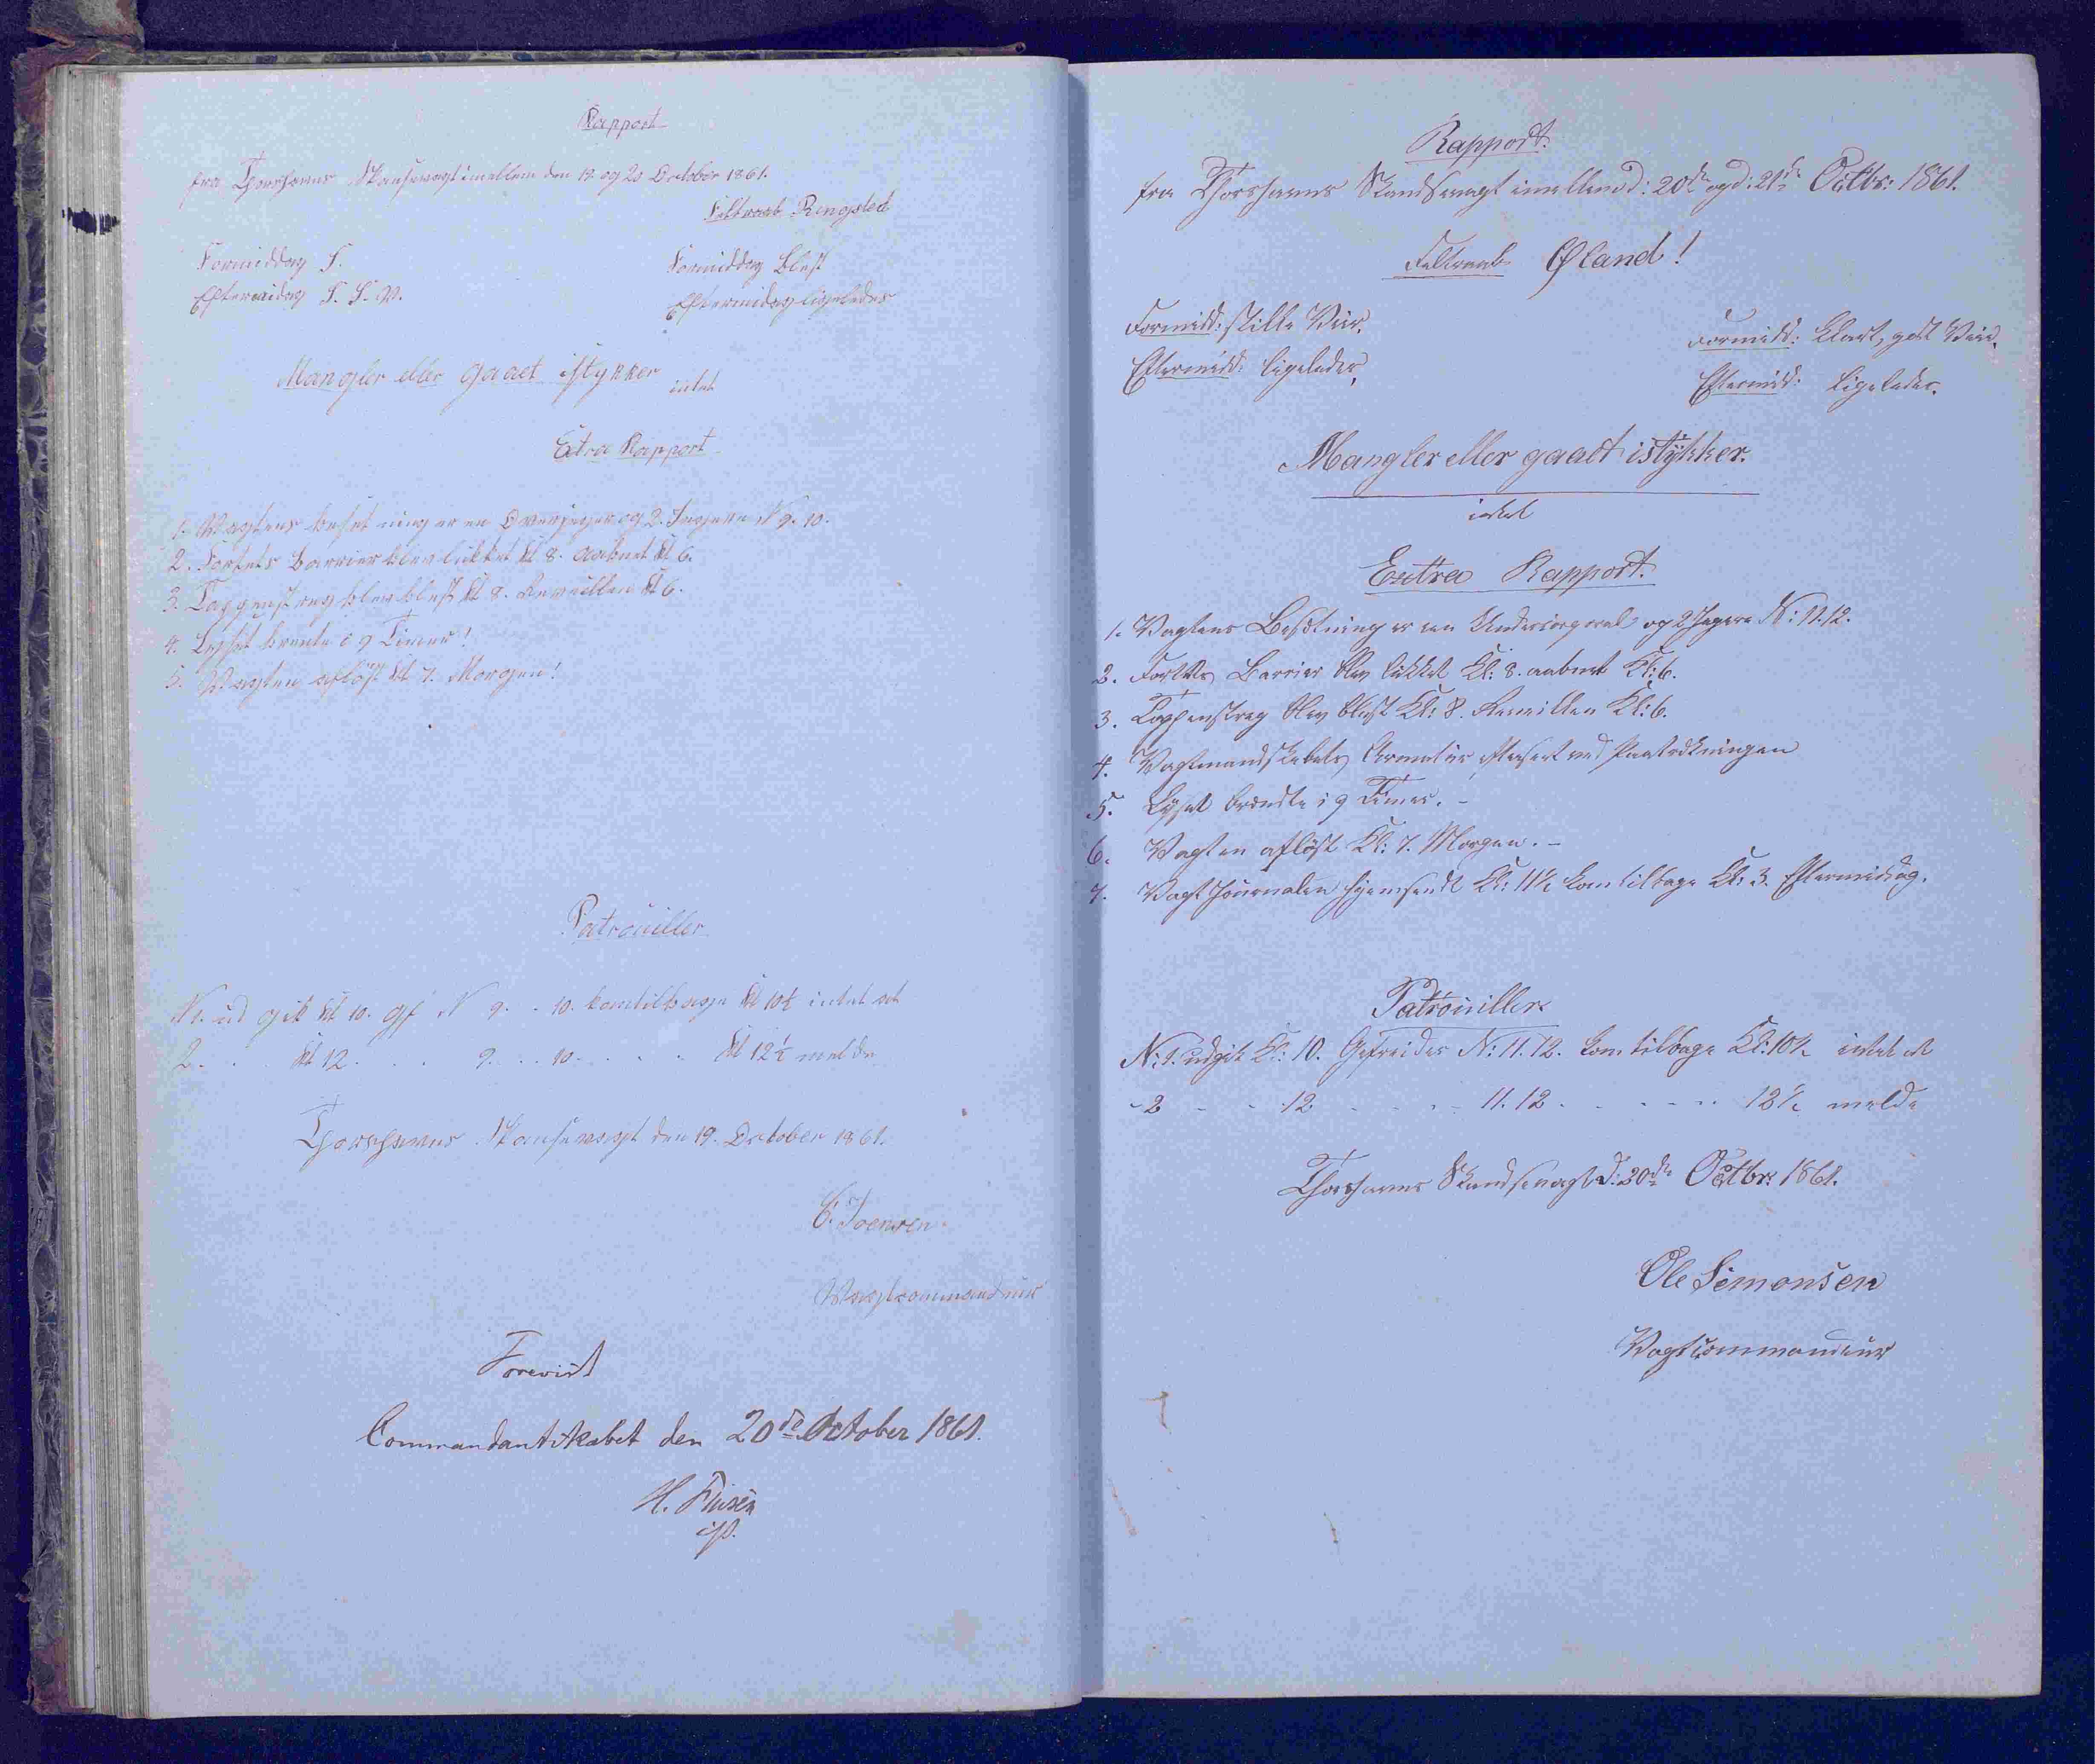 Rapport
fra Thorshavns Skansevagt imellem den 19. og 20 October 1861.
Feltraab Ringsted
Formiddag S.
Eftermidag S. S. W.
Formiddag Blest
Eftermidag ligeledes
Mangler eller gaaet istykker intet
Extra Rapport
1. Wagtens besetning er en Overjeger og 2. Jægere N 9. 10.
2. Fortets Barrier blev lukket Kl 8. aabnet Kl 6.
3. Tappenstreg blev blest Kl 8. Reveillen Kl 6.
4. Lyset brente i 9 Timer!
5. Wagten aflöst Kl 7. Morgen!
Patrouiller
N 1. ud gik Kl 10. Gf N 9. . 10. kom tilbage Kl 10½ intet at
2. . . Kl 12. . . 9. . . 10. . . . . Kl 12½ melde
Thorshavns Skansevagt den 19. October 1861.
Joensen
Wagtcommandeur
Forevist
Commandantskabet den 20de October 1861.
H. Finsen
Rapport.
fra Thorshavns Skandsevagt imellem d: 20de og d: 21de Octbr: 1861.
Feltraab Øland!
Formidd: stille Veir.
Eftermidd: ligeledes,
Formidd: klart, godt Veir.
Eftermidd: ligeledes.
Mangler eller gaaet istykker.
intet
Extra Rapport.
1. Vagtens Besætning er een Undercorporal og 2 Jægere N: 11. 12.
2. Fortets Barrier blev lukket Kl: 8. aabnet Kl: 6.
3. Tappenstreg blev blest Kl: 8. Reveillen Kl: 6.
4. Vagtmandskabets Armatur efterseet ved Paatrækningen
5. Lyset brændte i 9 Timer. -
6. Vagten aflöst Kl: 7. Morgen. -
7. Vagt Journalen hjemsendt Kl: 11½ kom tilbage Kl: 3. Eftermiddag.
Patrouiller.
N: 1. udgik Kl: 10. Gefreider N: 11. 12. kom tilbage Kl: 10½ intet at
- 2 - - 12 - - - - 11. 12 - - - - - 12½ melde
Thorshavns Skandsevagt d: 20de Octbr: 1861.
Ole Simonsen
Vagtcommandeur